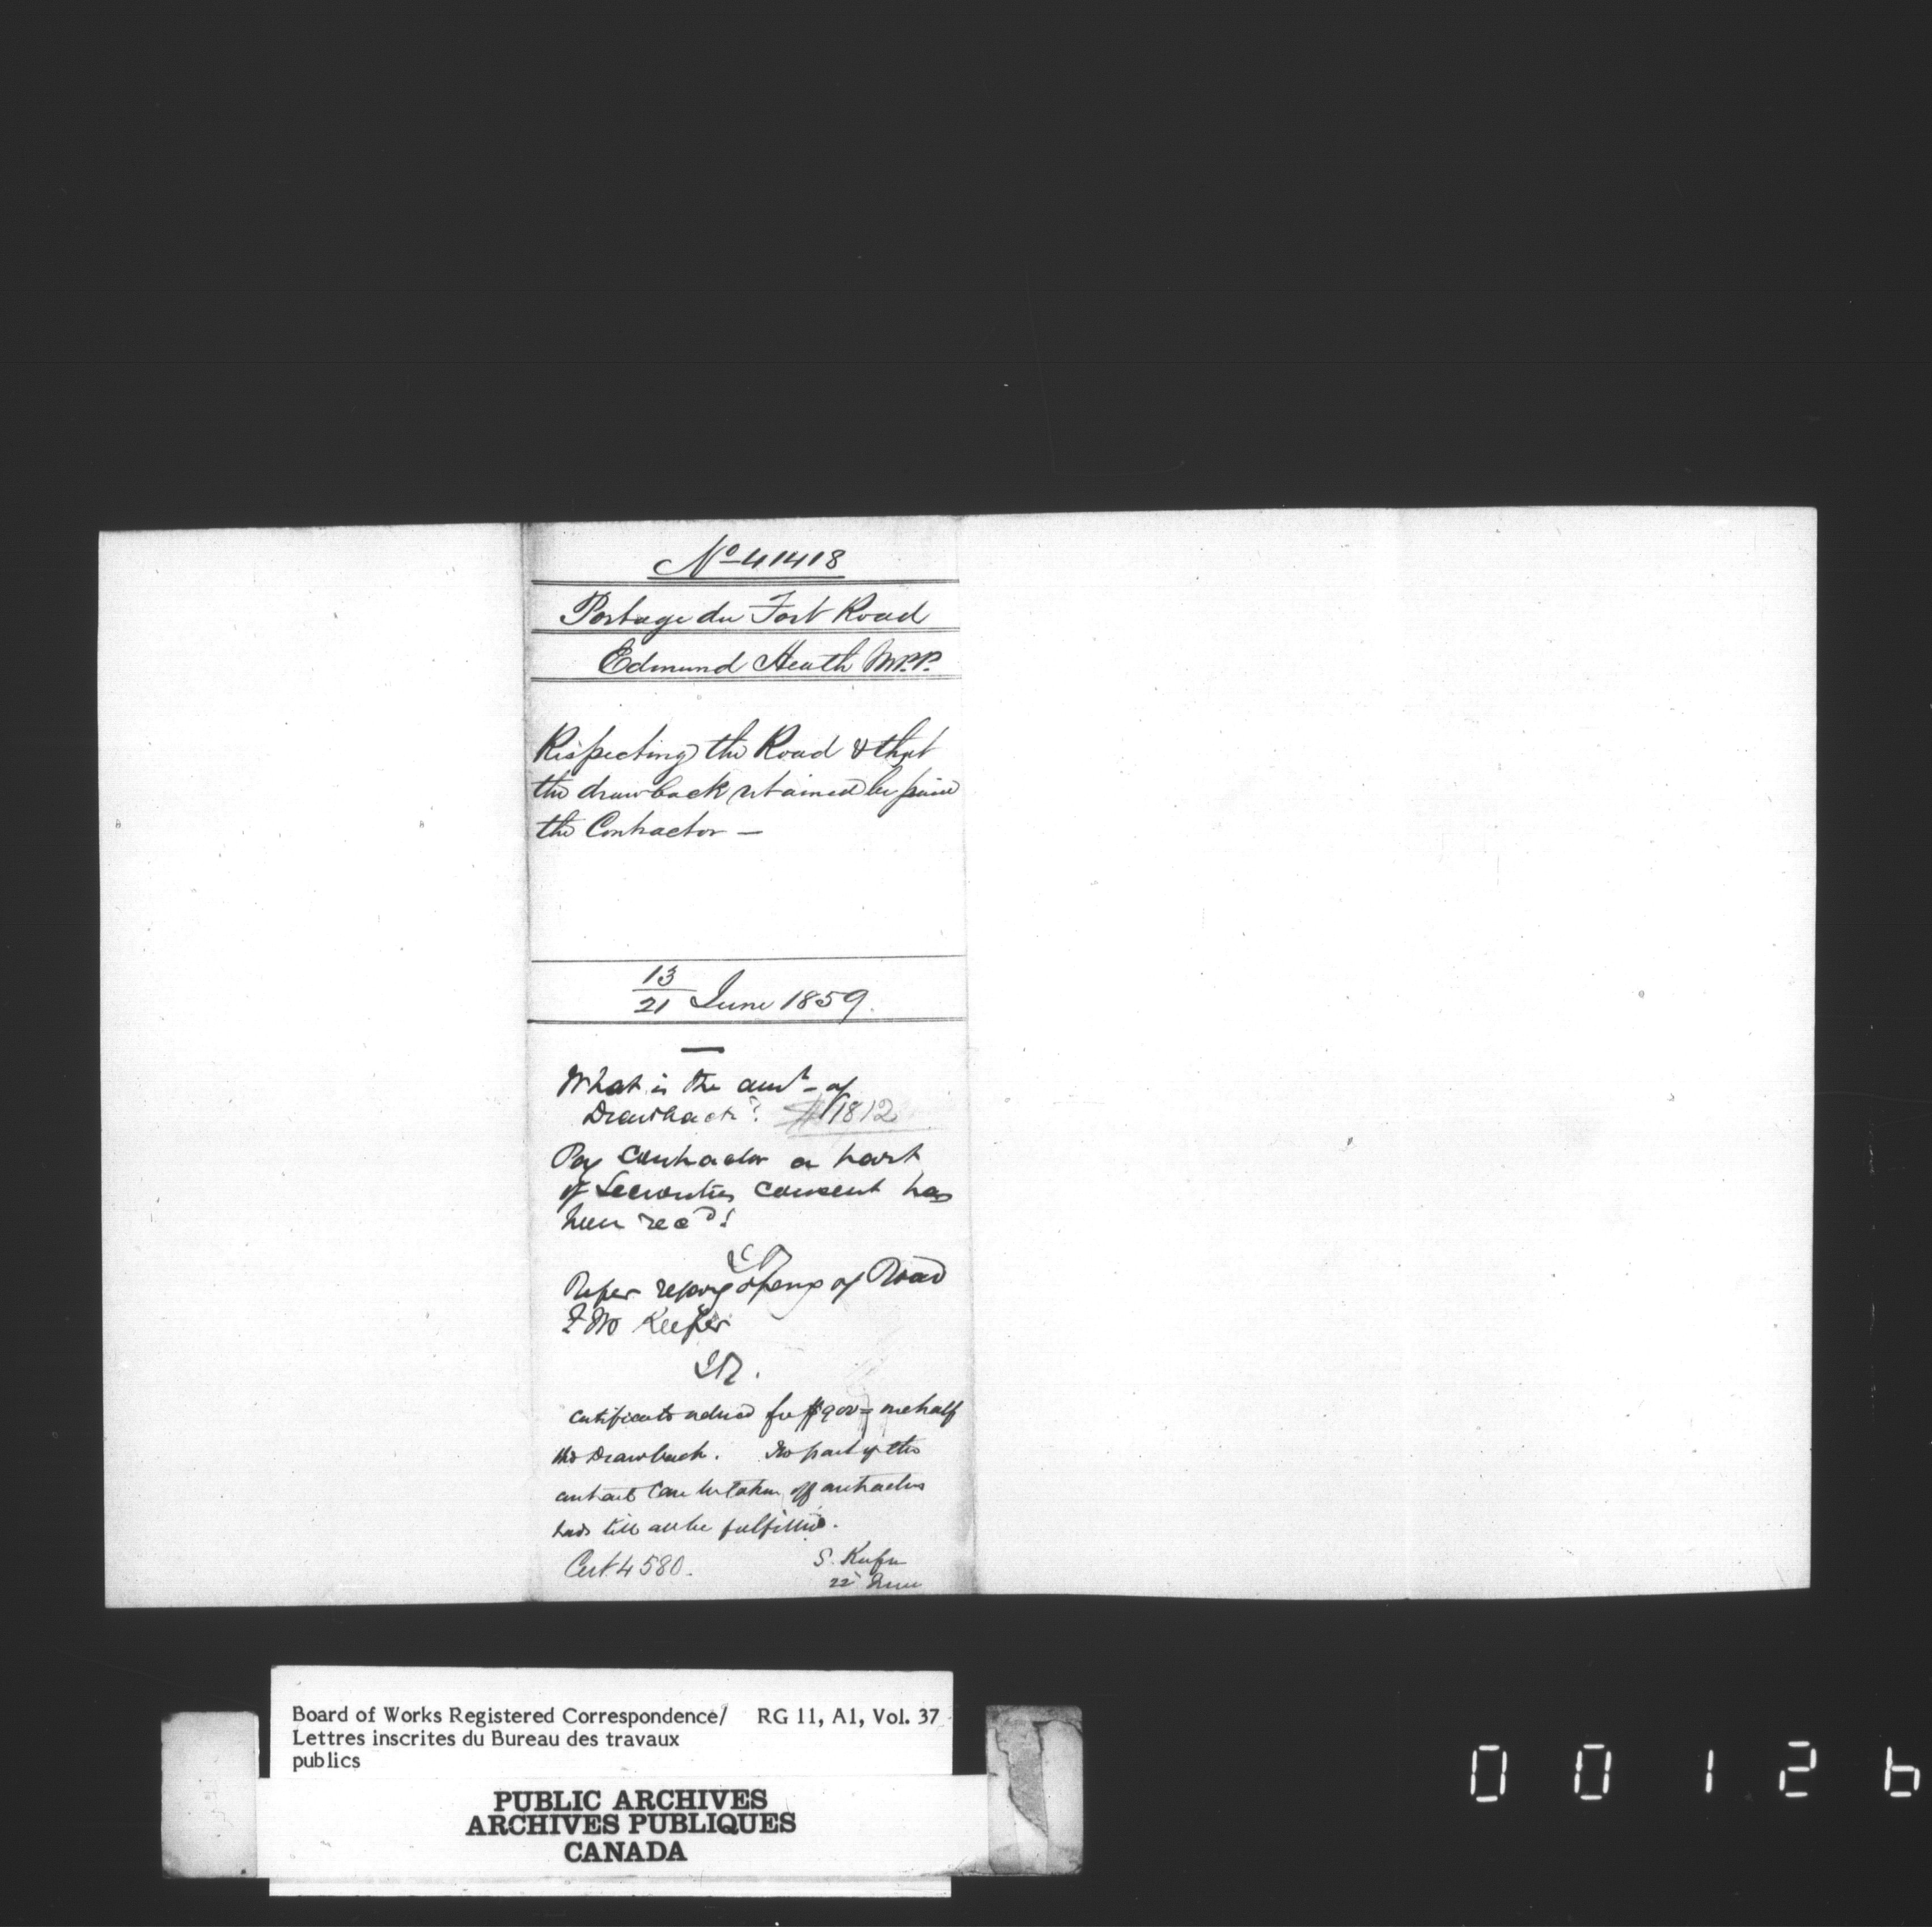 No 41418
Portage du Fort Road
Edmund Heath M.P.P.
Respecting the Road & that
the drawback retained be paid
the Contractor —
13
21 June 1859.
What is the amt of
Drawback? $1812
Pay Contractor a part
if Securities consent has
been recd!
Refer of Road
to Mr Keefer
J.R.
Certificate for $900 = one half
the Drawback. No part of the
contract can be taken off contractors
hands till all be fulfilled.
Cert 4580.
S. Keefer
22 June
Board of Works Registered Correspondence/ RG 11, A1, Vol. 37
Lettres inscrites du Bureau des travaux
publics
PUBLIC ARCHIVES
ARCHIVES PUBLIQUES
CANADA
00126